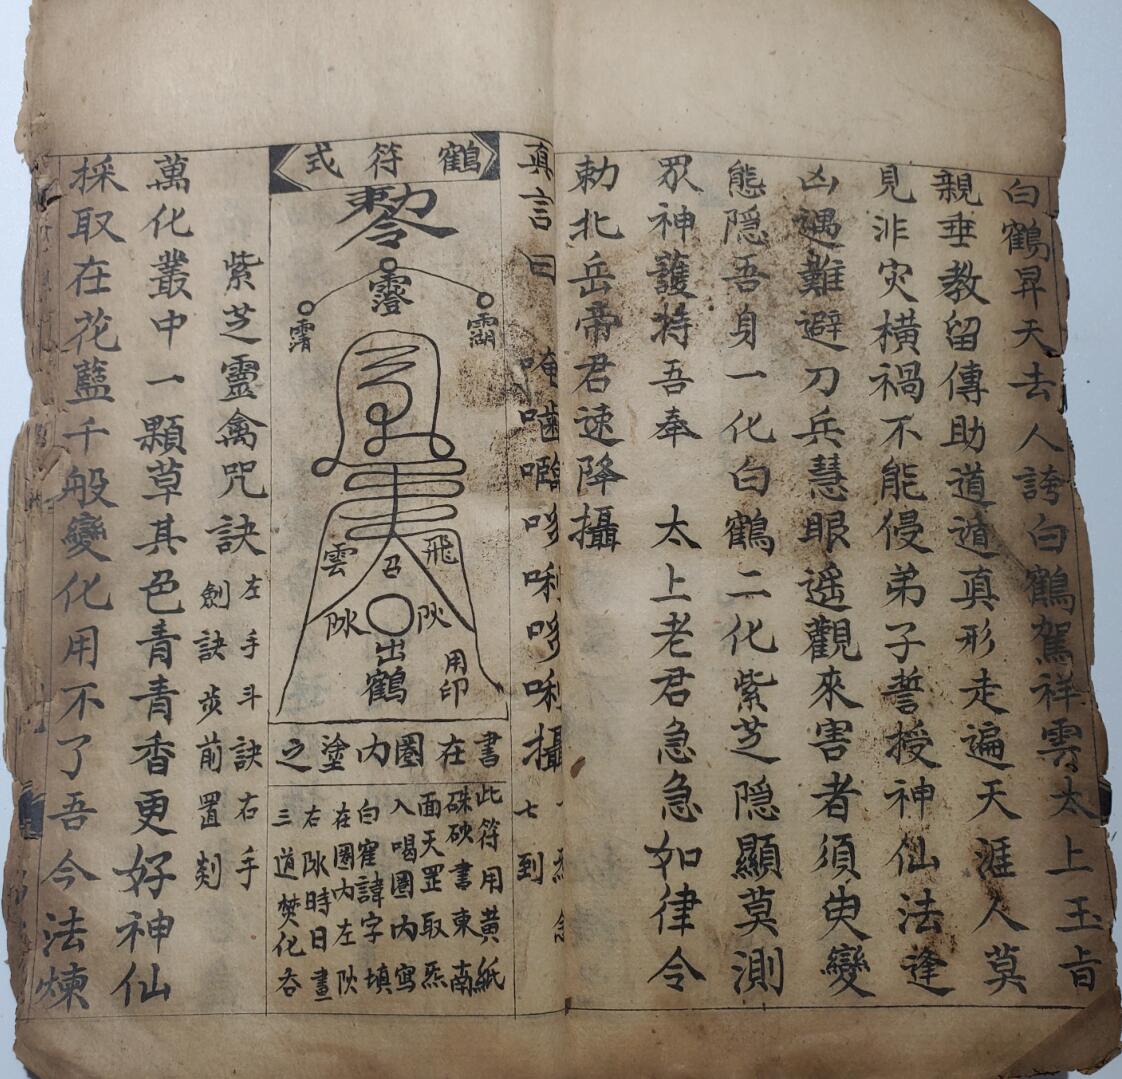 白鶴昇天去人誇白鶴駕祥雲太上玉旨
親垂教留傳助道遁真形走遍天涯人莫
見非灾横禍不能侵弟子誓授神仙法逢
凶遇難避刀兵慧眼遥觀來害者須臾變
態隐吾身一化白鶴二化紫芝隐顯莫測
眾神護持吾奉 太上老君急急如律令
勅北岳帝君速降攝
真言曰
哆唎哆唎攝
七到
鶴符式
勅令
霐
雲 召 飛
出鶴
用印
書在圈内塗之
此符用黄紙
硃砂書東南
面天罡取炁
入喝圈内寫
白寉諱字填
在圈内左
右 時日畫
三道焚化吞
紫芝靈禽咒訣
左手斗訣右手
劍訣 前置剡
萬化叢中一顆草其色青青香更好神仙
採取在花藍千般變化用不了吾今法煉